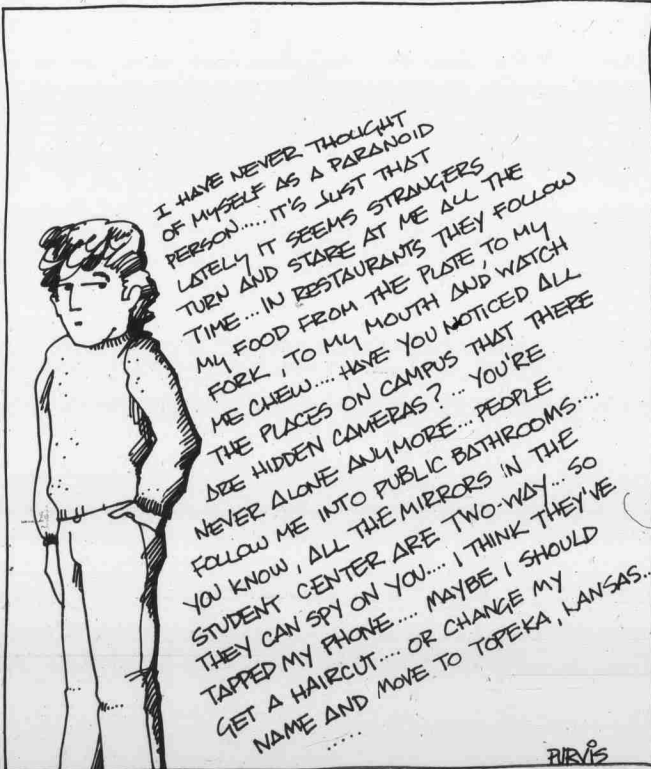 I HAVE NEVER THOUGHT
OF MYSELF AS A PARANOID
PERSON..... IT'S JUST THAT
LATELY IT SEEMS STRANGERS
TURN AND STARE AT ME ALL THE
TIME... IN RESTAURANTS THEY FOLLOW
MY FOOD FROM THE PLATE, TO MY
FORK, TO MY MOUTH AND WATCH
ME CHEW.... HAVE YOU NOTICED ALL
THE PLACES ON CAMPUS THAT THERE
ARE HIDDEN CAMERAS? ... YOU'RE
NEVER ALONE ANYMORE... PEOPLE
FOLLOW ME INTO PUBLIC BATHROOMS....
YOU KNOW, ALL THE MIRRORS IN THE
STUDENT CENTER ARE TWO-WAY... SO
THEY CAN SPY ON YOU.... I THINK THEY'VE
TAPPED MY PHONE.... MAYBE I SHOULD
GET A HAIRCUT.... OR CHANGE MY
NAME AND MOVE TO TOPEKA, KANSAS...
.....
PURVIS